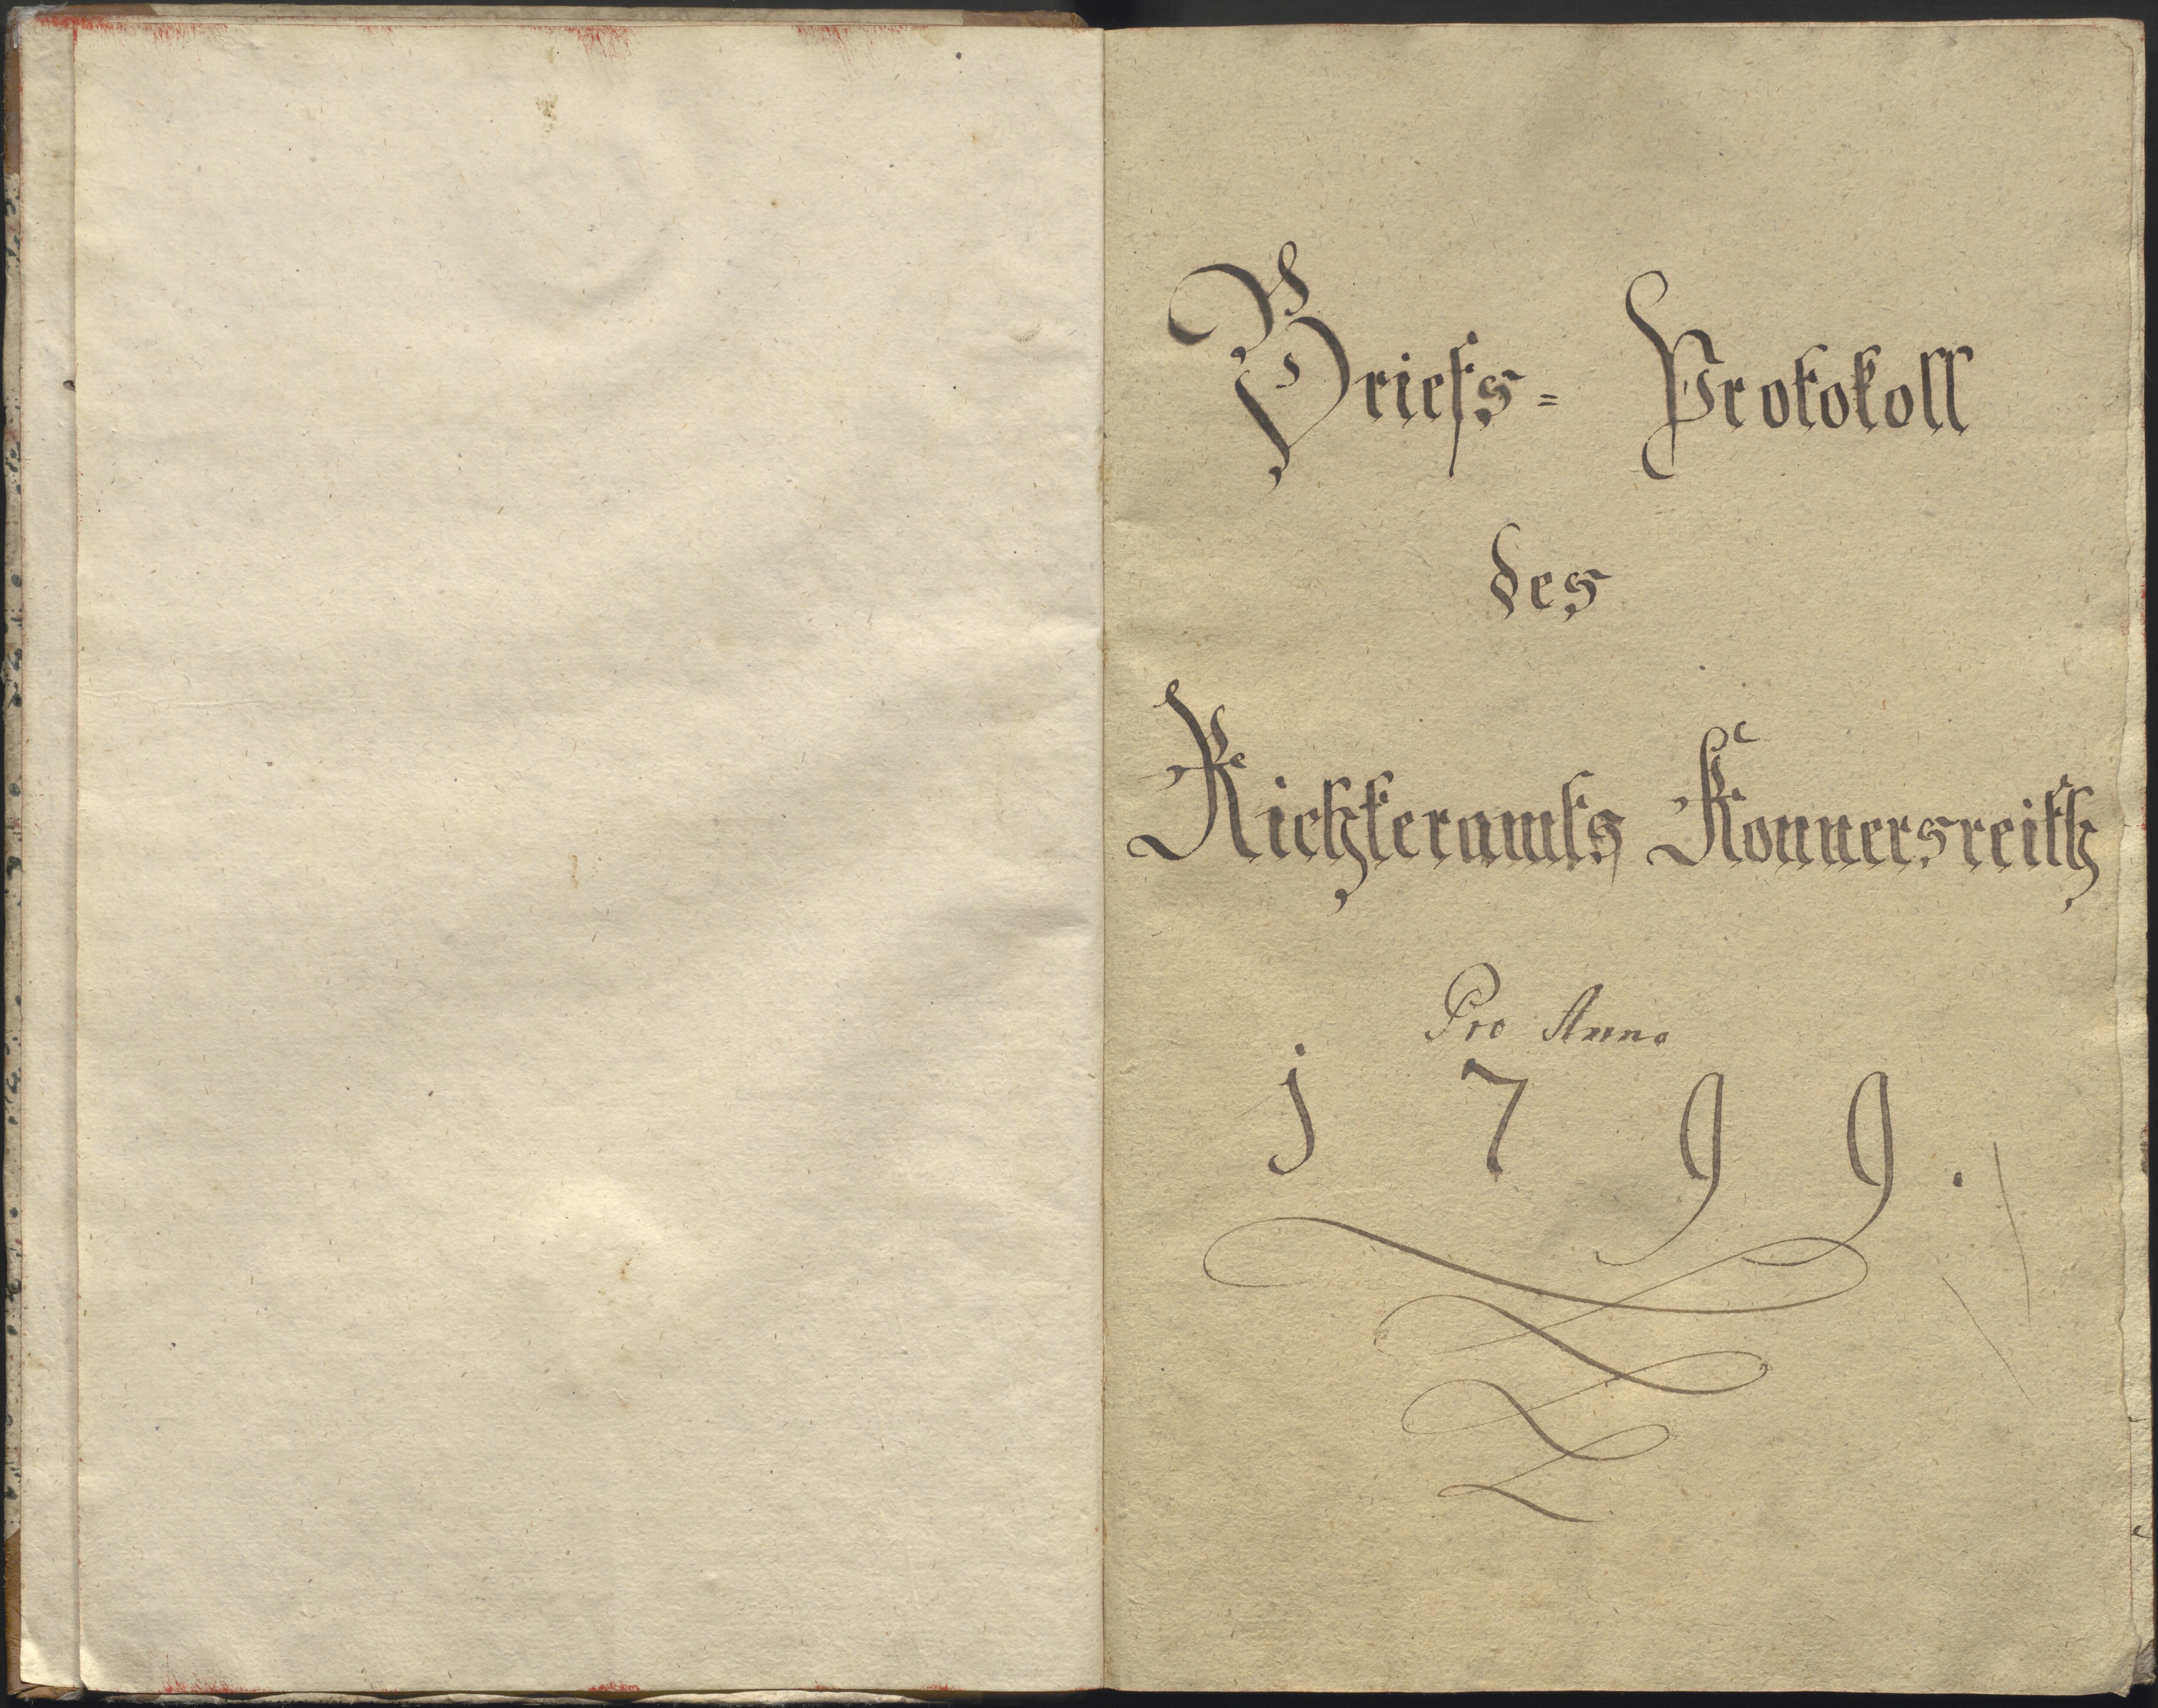 Briefs= Protokoll
des
Richteramts Konnersreith
Pro Anno
1799.